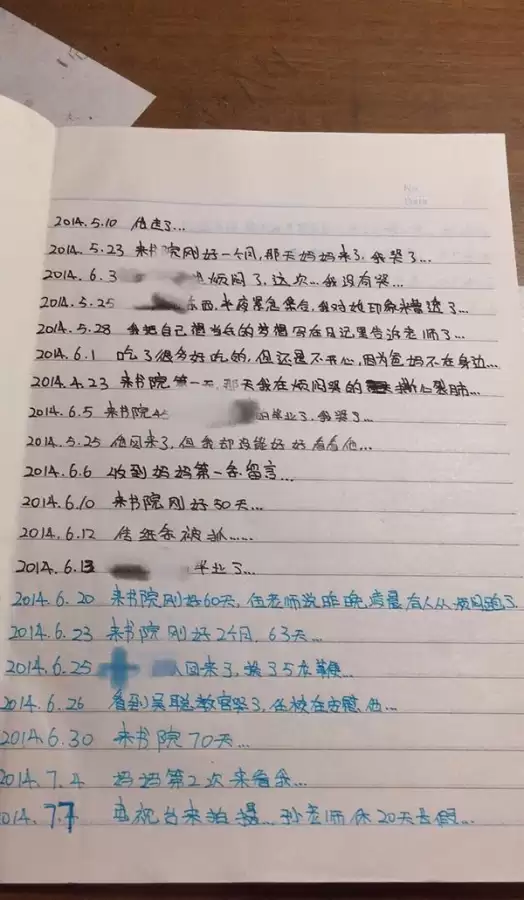 2014.5.10 信走了...
2014.5.23 来书院刚好一个月,那天妈妈来了,我哭了...
2014.6.3 烦闷了,这次...我没有哭...
2014.5.25 东西,半夜紧急集合,我对她印象米普透了...
2014.5.28 我把自己想当兵的梦想写在日记里告诉老师了...
2014.6.1 吃了很多好吃的,但还是不开心,因为爸妈不在身边...
2014.4.23 来书院第一天,那天我在烦闷哭的撕心裂肺...
2014.6.5 来书院45 毕业了,我哭了...
2014.5.25 伍回来了,但我却没能好好看看他...
2014.6.6 收到妈妈第一条留言...
2014.6.10 来书院刚好50天...
2014.6.12 信纸条被抓......
2014.6.13 毕业了...
2014.6.20 来书院刚好60天,伍老师说昨晚 有人从烦闷跑了
2014.6.23 来书院刚好2个月,63天...
2014.6.25 人回来了,挨了5龙鞭...
2014.6.26 看到吴聪教官哭了,任校在安慰他...
2014.6.30 来书院70天...
2014.7.4 妈妈第2次来看我...
2014.7.7 电视台来拍摄...孙老师休20天长假...